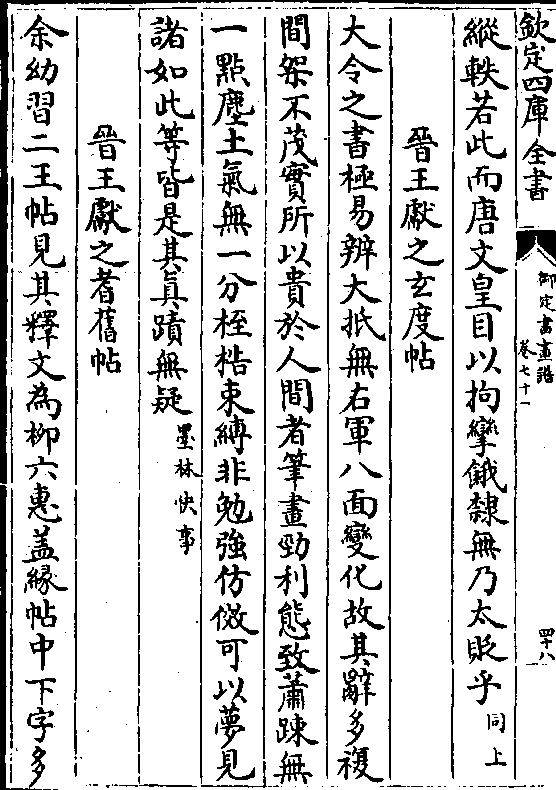 欽定四庫全書
御定書畫譜
卷七十一
四十八
縱軼若此而唐文皇目以拘攣餓隸無乃太貶乎同上
晉王獻之玄度帖
大令之書極易辨大抵無右軍八面變化故其辭多複
間架不茂實所以貴於人間者筆畫勁利態致蕭踈無
一點塵土氣無一分桎梏束縛非勉強仿傚可以夢見
諸如此等皆是其真蹟無疑墨林快事
晉王獻之耆舊帖
余幼習二王帖見其釋文為柳六惠盖緣帖中下字多